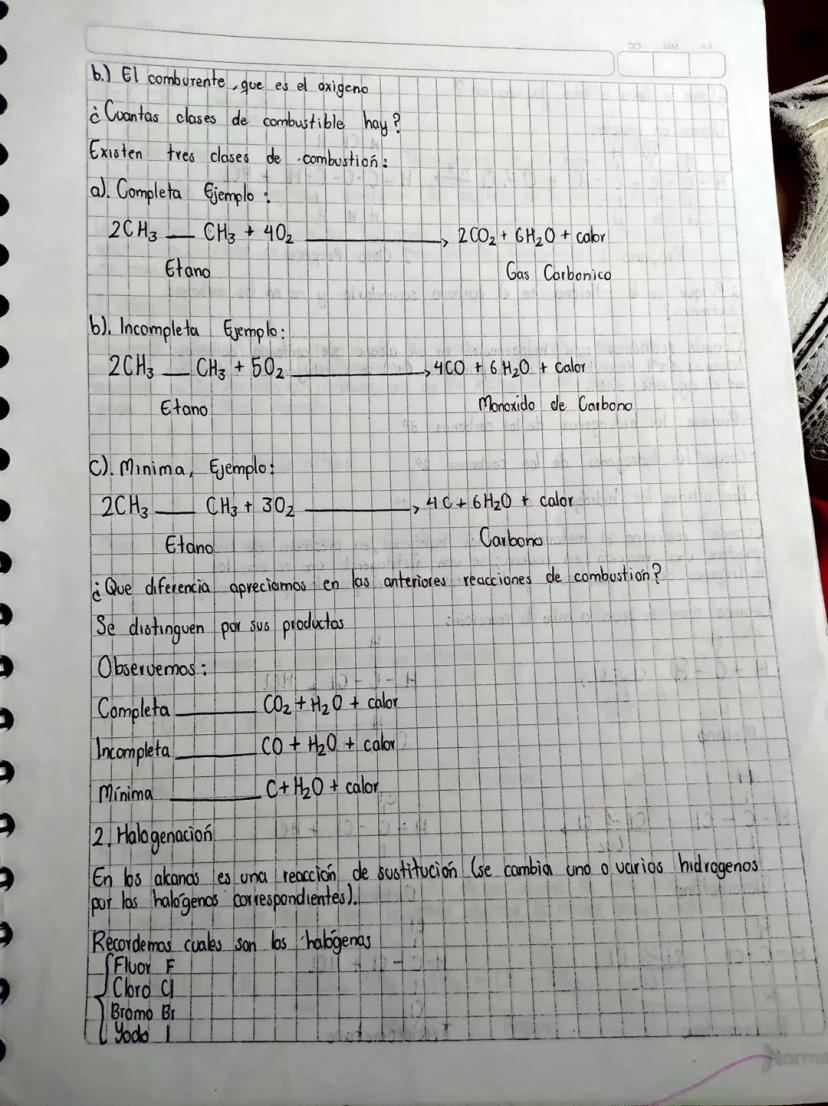 DD MM AA
b.) El comburente, que es el oxigeno
¿Cuantas clases de combustible hay?
Existen tres clases de combustión:
a). Completa Ejemplo:
2CH₃ — CH₃ + 4O₂ ⟶ 2CO₂ + 6H₂O + calor
Etano Gas Carbonico
b). Incompleta Ejemplo:
2CH₃ — CH₃ + 5O₂ ⟶ 4CO + 6H₂O + calor
Etano Monoxido de Carbono
C). Minima, Ejemplo:
2CH₃ — CH₃ + 3O₂ ⟶ 4C + 6H₂O + calor
Etano Carbono
¿Que diferencia apreciamos en las anteriores reacciones de combustión?
Se distinguen por sus productos
Observemos:
Completa ______ CO₂ + H₂O + calor
Incompleta ______ CO + H₂O + calor
Mínima ______ C + H₂O + calor
2. Halogenación
En los alcanos es una reacción de sustitución (se cambia uno o varios hidrogenos
por los halógenos correspondientes).
Recordemos cuales son los halógenos
Fluor F
Cloro Cl
Bromo Br
Yodo I
Norma